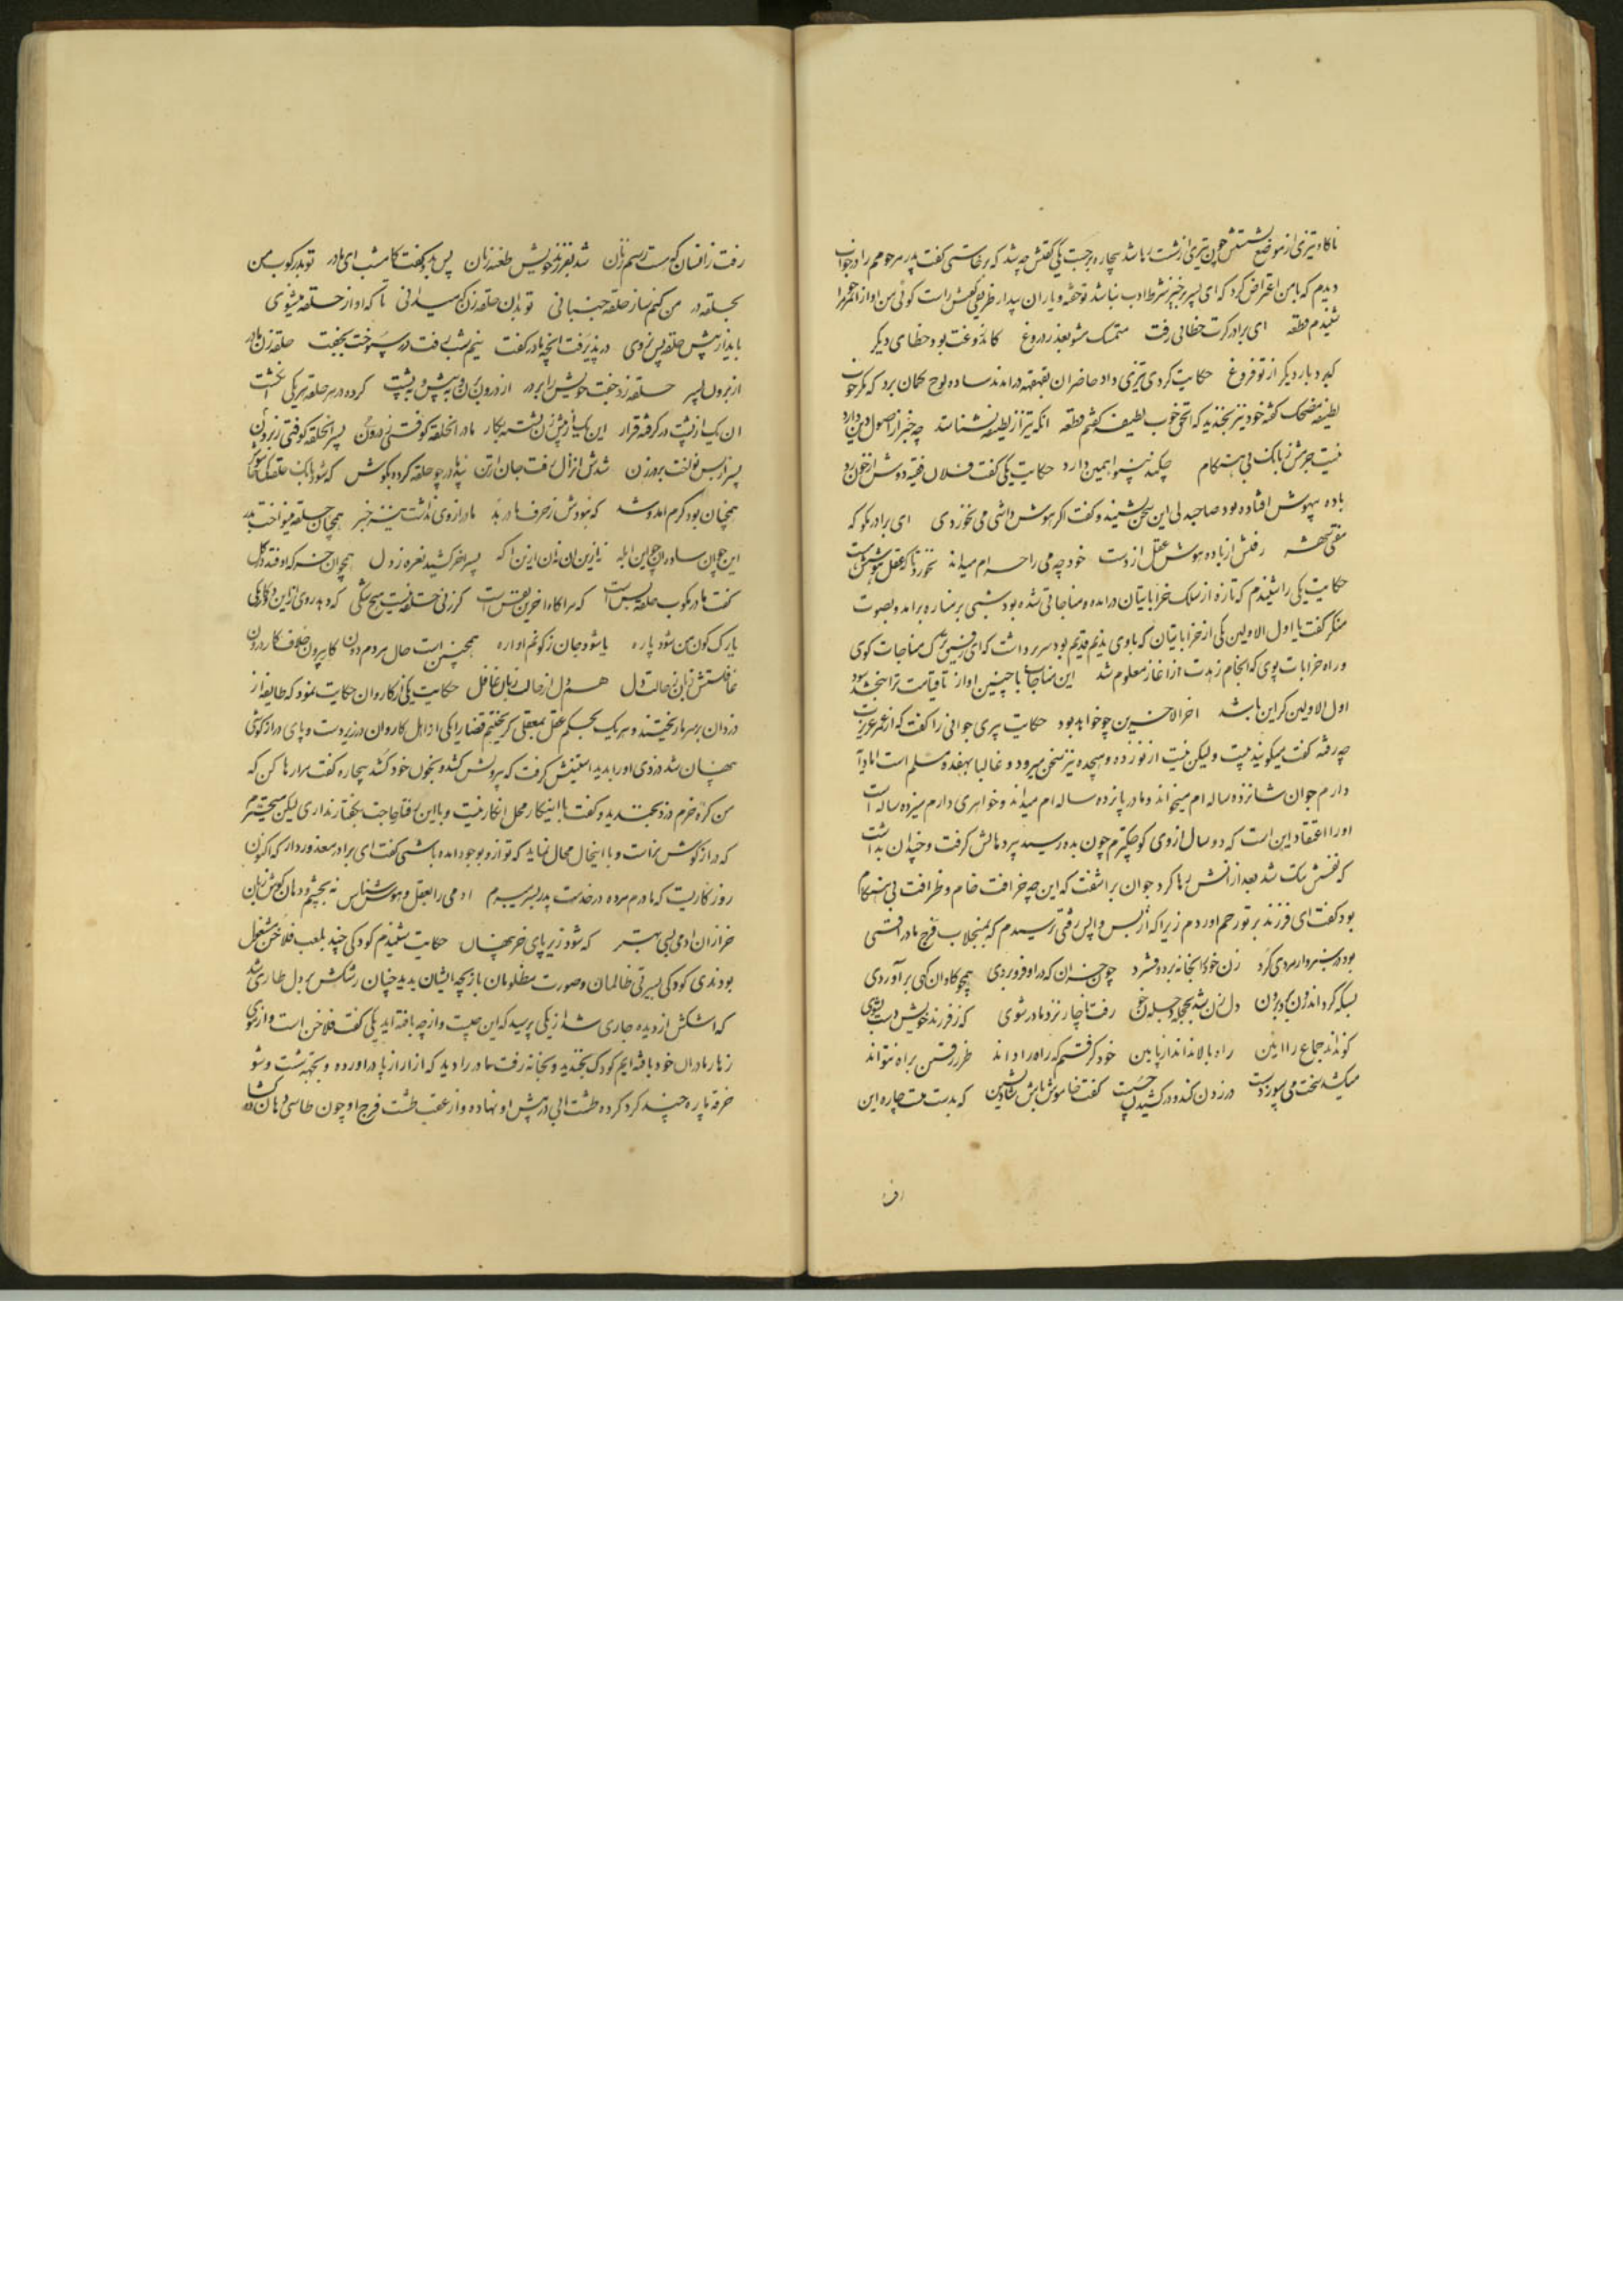 ناکاه تیزی از موضع نشستنش چون تیری از شست رها شد بیچاره برجست یکی گفتش چه شد که برخاستی گفت پدر مرحومم را در خواب
دیدم که با من اعتراض کرد که ای پسر برخیز شرط ادب نباشد تو خفته و یاران بیدار ظریفی گفتش راست گوئی من آواز آنمرحوم را
شنیدم قطعه ای برادر گرت خطائی رفت متمسک مشو بعذر دروغ کان دروغت بود خطای دیگر
که برد بار دیگر از تو فروغ حکایت کردی تیزی داد حاضران بقهقهه درآمدند ساده لوح گمان برد که مگر خوب
لطیفه مضحک گفته خود نیز بخندید که الحق خوب لطیفه گفتم قطعه آنکه تیز از لطیفه نشناسد چه خبر از اصول دین دارد
نیست جرمش ز بانک بی هنگام چکند پیشوا همین دارد حکایت یکی گفت فلان فقیه دوش از خوردن
باده بیهوش افتاده بود صاحبدلی این سخن بشنید و گفت اگر هوش داشتی می نخوردی ای برادر مگو که
مفتی شهر رفتش از باده هوش عقل از دست خود چه می را حرام میداند نخورد تا که عقل و هوشش هست
حکایت یکی را شنیدم که تازه از سلک خراباتیان درآمده و مناجاتی شده بود شبی بر مناره برآمد و بصوت
منکر گفت یا اول الاولین یکی از خراباتیان که با وی ندیم قدیم بود سر برداشت که ای رفیق ترک مناجات گوی
و راه خرابات پوی که انجام زهدت از آغاز معلوم شد این مناجات با چنین آواز تا قیامت ترا نبخشد سود
اول الاولین گر این باشد آخر الاخرین چو خواهد بود حکایت پیری جوانی را گفت که از عمر عزیزت
چه رفته گفت میگویند بیست ولیکن نیست از نوزده و هیجده نیز سخن میرود و غالبا بهفده مسلم است اما دایه
دارم جوان شانزده ساله ام میخواند و مادر پانزده ساله ام میداند و خواهری دارم سیزده ساله است
او را اعتقاد این است که دو سال از وی کوچکترم چون بده رسید پیر دهانش گرفت و چندان بداشت
که نفسش تنک شد بعد از آنش رها کرد جوان برآشفت که این چه خرافت خام و ظرافت بی هنگام
بود گفت ای فرزند بر تو رحم آوردم زیرا که از بس واپس رفتی ترسیدم که بمنجلاب فرج مادر افتی
زن خود را بخانه برد و فشرد چون خران که در او فرو بردی همچو کاوان گهی برآوردی
بسکه کرد اندرون و برد برون رفت ناچار نزد مادر شوی که ز فرزند خویش دست بشوی
کو نداند جماع را آئین راه بالا نداند از پایین خود گرفتم که راه را داند طرز رفتن براه نتواند
میکشد سخت می سپوزد سست در زدن کند و در کشیدن چست گفت خاموش باش شاد نشین که بدست منست چاره این
این
رفت زآنسان که هست رسم زنان شد بفرزند خویش طعنه زنان پس بدو گفت کامشب ای مادر تو بدر کوب من
بحلقه در من کنم ساز حلقه جنبانی تو بدان حلقه زن که میدانی تا که آواز حلقه میشنوی
باید از پیش حلقه پس نروی در پذیرفت آنچه مادر گفت نیم شب رفت در بستر و خت بجفت حلقه زن مادر
از برون پسر حلقه زد جفت خویش را بر در از درون و برون و پیش و ز پشت کرده در هر حلقه هر یکی انگشت
آن یک از پشت در گرفته قرار این یک از پیش زن نشسته بکار مادر آنحلقه کوفتی ز درون پسر آنحلقه کوفتی ز برون
پسر از بس نواخت بر در زن شدش از آن لذت جان از تن پنبه در چو حلقه کرده بگوش که شود بانک حلقه کش
همچنان بود گرم آمد و شد که نبودش ز حرف مادر بد مادر از وی نداشت نیز خبر همچنان حلقه مینواخت بدر
این چون پسر آخر کشید نعره ز دل همچو آن خر که اوفتد در گل
گفت مادر بکوب حلقه بس است که مرا گاه آخرین نفس است
یارک کون من شود پاره یا شود جان ز کونم آواره همچنین است حال مردم دون کار بیرون خلاف کار درون
غافلستش زبان ز حالت دل هم دل از حالت زبان غافل حکایت یکی از کاروان حکایت نمود که طایفه از
دزدان بر سر ما ریختند و هر یک بحکم عقل بمعقلی گریختیم قضا را یکی از اهل کاروان در زیر دست و پای دراز گوشی
پنهان شد دزدی او را بدید آستینش گرفت که بیرونش کشد و بخون خود کشد بیچاره گفت مرا رها کن که
من کره خرم دزد بخندید و گفت با اینکار محل انکار نیست و با این رفتار حاجت بگفتار نداری لیکن متحیرم
که دراز گوش نر است و با اینحال محال نماید که تو از او بوجود آمده باشی گفت ای برادر معذور دار که اکنون
روزگاریست که مادرم مرده در خدمت پدر بسر میبرم آدمی را بعقل و هوش شناس نه بچشم و دهان و گوش و زبان
خر از آن آدمی بسی بهتر که شود زیر پای خر پنهان حکایت شنیدم کودکی چند بلعب فلاخن مشغول
بودندی کودکی بسیرت ظالمان و صورت مظلومان بازیچه ایشان بدید چنان رشکش بر دل طاری شد
که اشکش از دیده جاری شد از یکی پرسید که این چیست و از چه بافته اید یکی گفت فلاخن است و از موی
زهار مادران خود بافته ایم کودک بخندید و بخانه رفت مادر را دید که ازار از پا درآورده و بجهة شست و شو
خرقه پاره چند گرد کرده طشت آبی در پیش او نهاده و از عقب طشت فرج او چون طاسی دهان گشاده